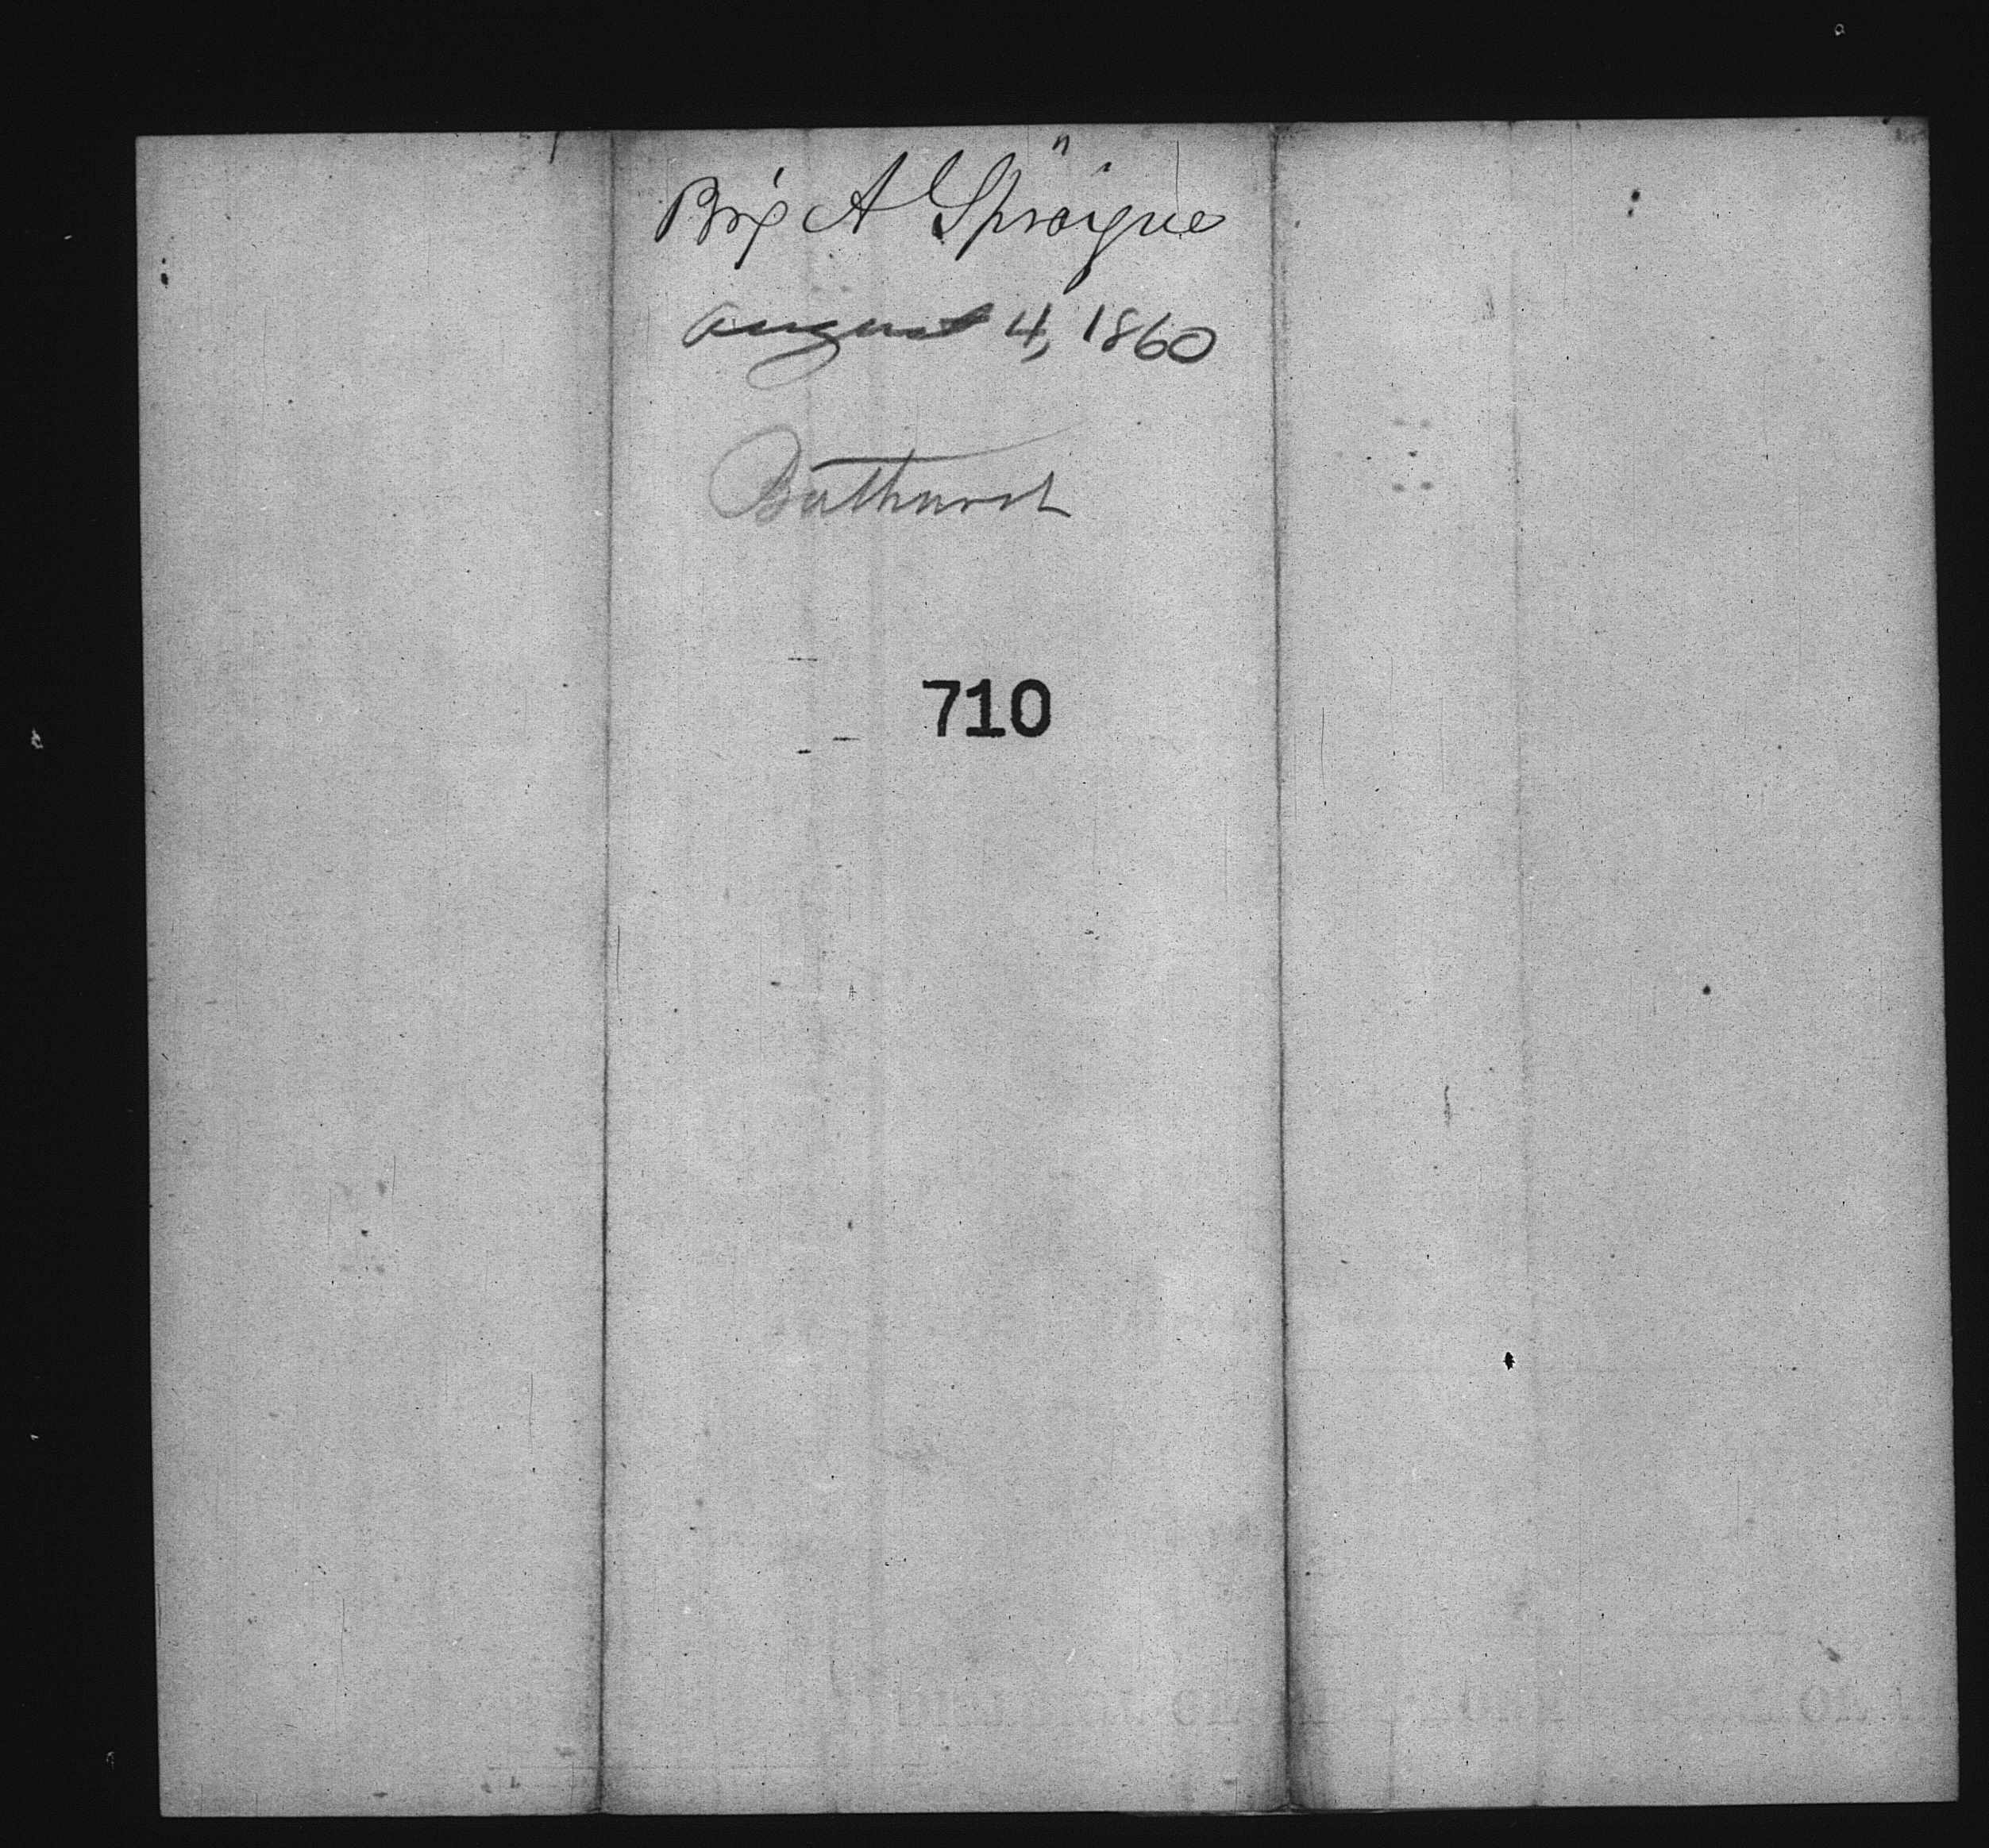 Brig A Sprague
August 4, 1860
Bathurst
710